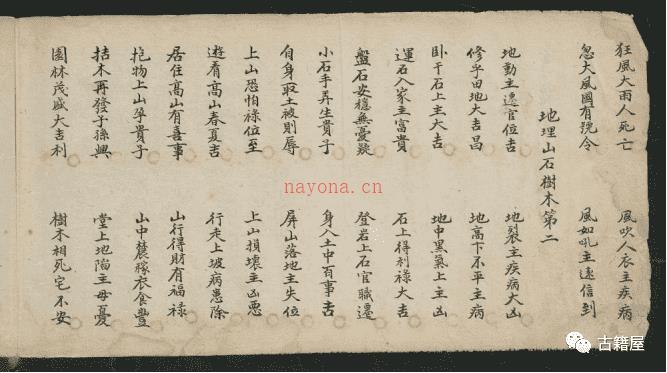 狂風大雨人死亡 風吹人衣主疾病
忽大風國有號令 風如吼主遠信到
地理山石樹木第二
地動主遷官位吉 地裂主疾病大凶
修乎田地大吉昌 地高下不平主病
卧于石上主大吉 地中黑氣上主凶
運石入家主富貴 石上得利祿大吉
盤石安穩無憂疑 登岩上石官職遷
小石手弄生貴子 身入土中百事吉
自身取土被則辱 屏山落地主失位
上山恐怕祿位至 上山損壞主凶惡
遊看髙山春夏吉 行走上坡病患除
居住髙山有喜事 山行得財有福祿
抱物上山孕貴子 山中農稼衣食豐
枯木再發子孫興 堂上地陷主母憂
園林茂盛大吉利 樹木枯死宅不安
nayona.cn
古籍屋